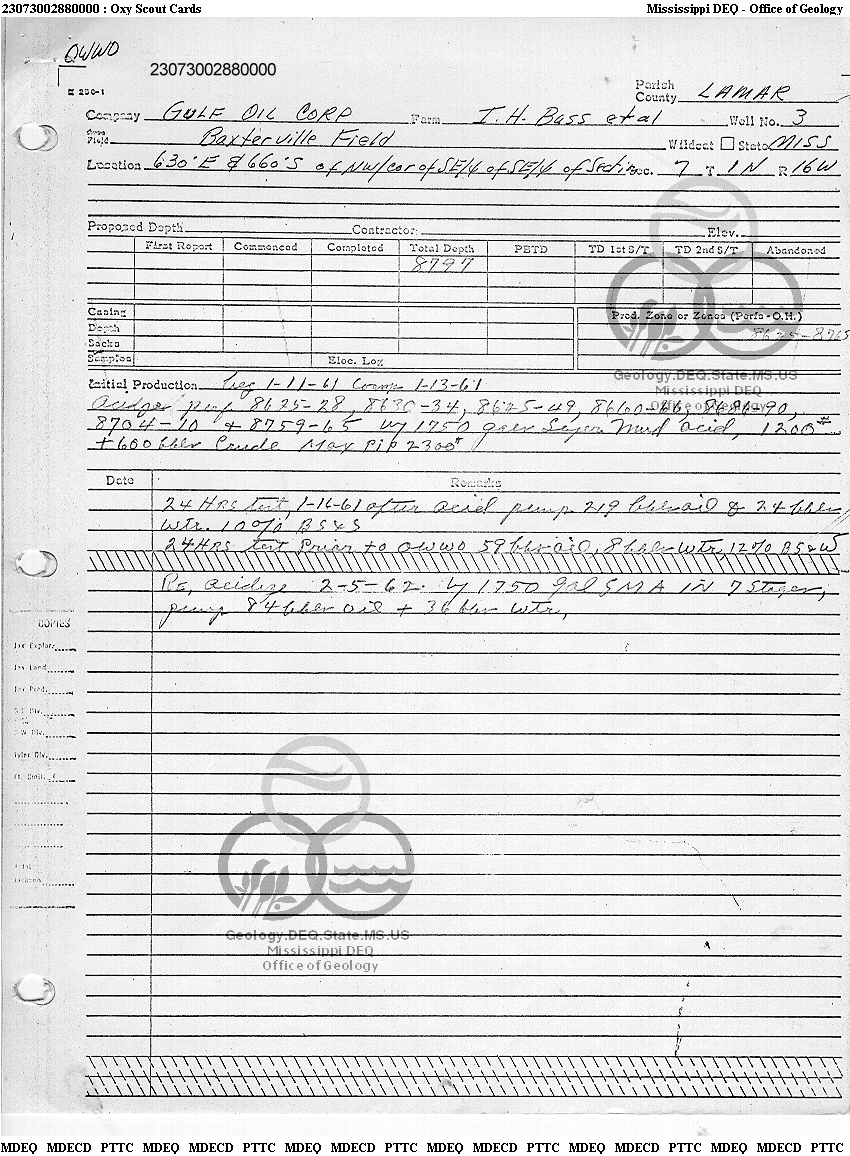 23073002880000 : Oxy Scout Cards Mississippi DEQ - Office of Geology
OWWO
23073002880000
Parish
County LAMAR
Company GULF OIL CORP Farm I. H. Bass et al Well No. 3
Field Baxterville Field Wildcat State MISS
Location 630' E & 660' S of NW/cor of SE/4 of SE/4 of Section Sec. 7 T 1N R 16W
Proposed Depth Contractor Elev.
First Report Commenced Completed Total Depth PBTD TD 1st S/T TD 2nd S/T Abandoned
8797
Casing Prod. Zone or Zones (Perfs-O.H.)
Depth 8625-8765
Sacks
Samples Elec. Log
Geology.DEQ.State.MS.US
Mississippi DEQ
Office of Geology
Initial Production 1-11-61 Comp 1-13-61
perf 8625-28, 8630-34, 8625-49, 8660-66, 8686-90,
8704-10 & 8759-65 w/ 1750 Mud acid, 1200#
+ 600 bbls Crude Max PIP 2300#
Date Remarks
24 HRS test, 1-16-61 after acid pump 219 bbls oil & 24 bbls
wtr. 10% BS&S
24 HRS test Prior to OWWO 59 bbls oil, 8 bbls wtr, 12% BS&W
Re, acidize 2-5-62 w/ 1750 gal SMA IN 7 Stages,
pump 84 bbls oil + 36 bbls wtr,
COPIES
Jax Explore
Jax Land
Jax Prod.
S.W. Div.
Tyler Div.
Jackson
Geology.DEQ.State.MS.US
Mississippi DEQ
Office of Geology
MDEQ MDECD PTTC MDEQ MDECD PTTC MDEQ MDECD PTTC MDEQ MDECD PTTC MDEQ MDECD PTTC MDEQ MDECD PTTC